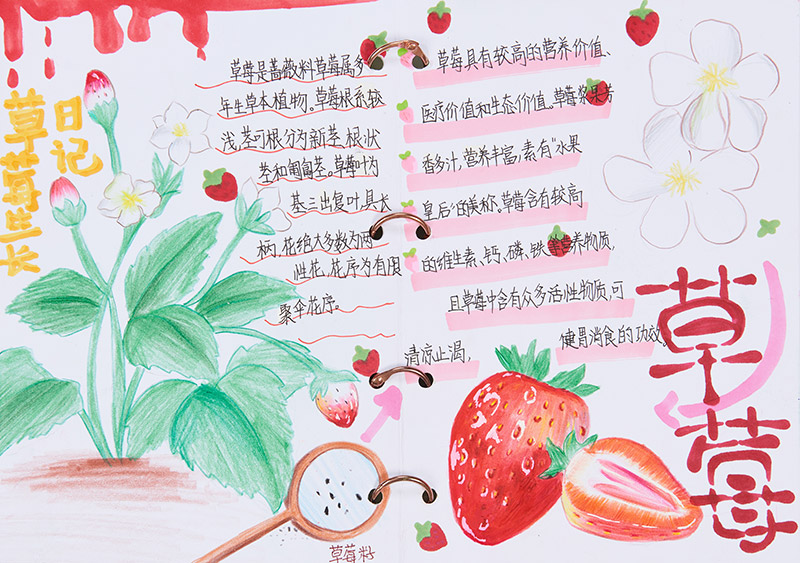 草莓生长
日记
草莓是蔷薇料草莓属多
年生草本植物。草莓根系较
浅，茎可根分为新茎、根状
茎和匍匐茎。草莓叶为
基三出复叶，具长
柄，花绝大多数为两
性花，花序为有限
聚伞花序。
草莓籽
草莓具有较高的营养价值、
医疗价值和生态价值。草莓浆果芳
香多汁，营养丰富，素有“水果
皇后”的美称。草莓含有较高
的维生素、钙、磷、铁等营养物质，
且草莓中含有众多活性物质，可
健胃消食的功效
清凉止渴，
草莓